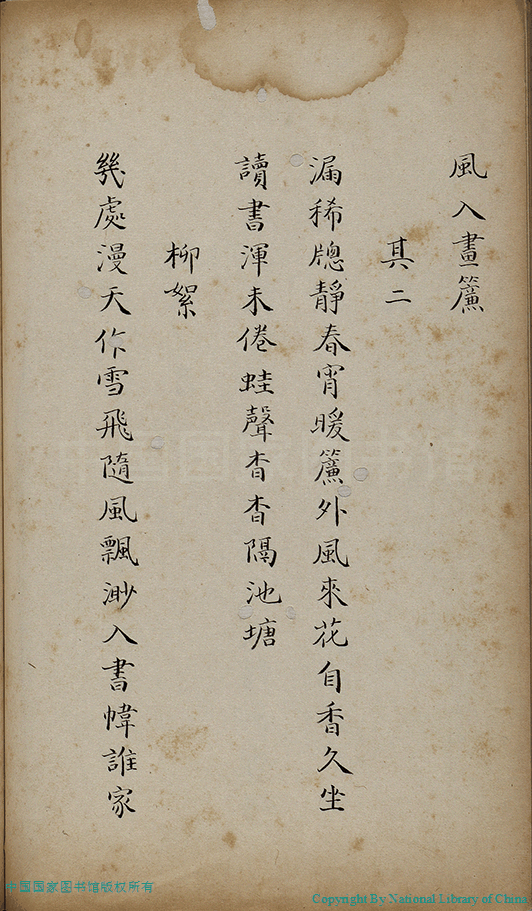 風入畫簾
其二
漏稀牕靜春宵暖簾外風來花自香久坐
讀書渾未倦蛙聲杳杳隔池塘
柳絮
幾處漫天作雪飛隨風飄渺入書幃誰家
中国国家图书馆版权所有
Copyright By National Library of China